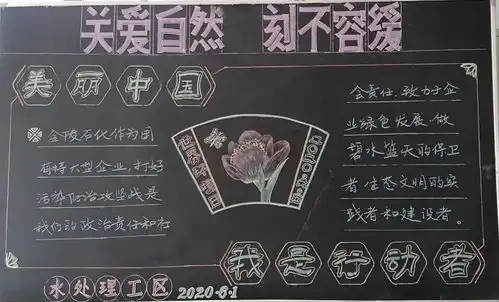 关爱自然 刻不容缓
美丽中国
金陵石化作为国
有特大型企业,打好
污染防治攻坚战是
我们的政治责任和社
世界环境日
会责任,致力于企
业绿色发展,做
碧水蓝天的保卫
者、生态文明的实
践者和建设者。
我是行动者
水处理工区 2020·6·1